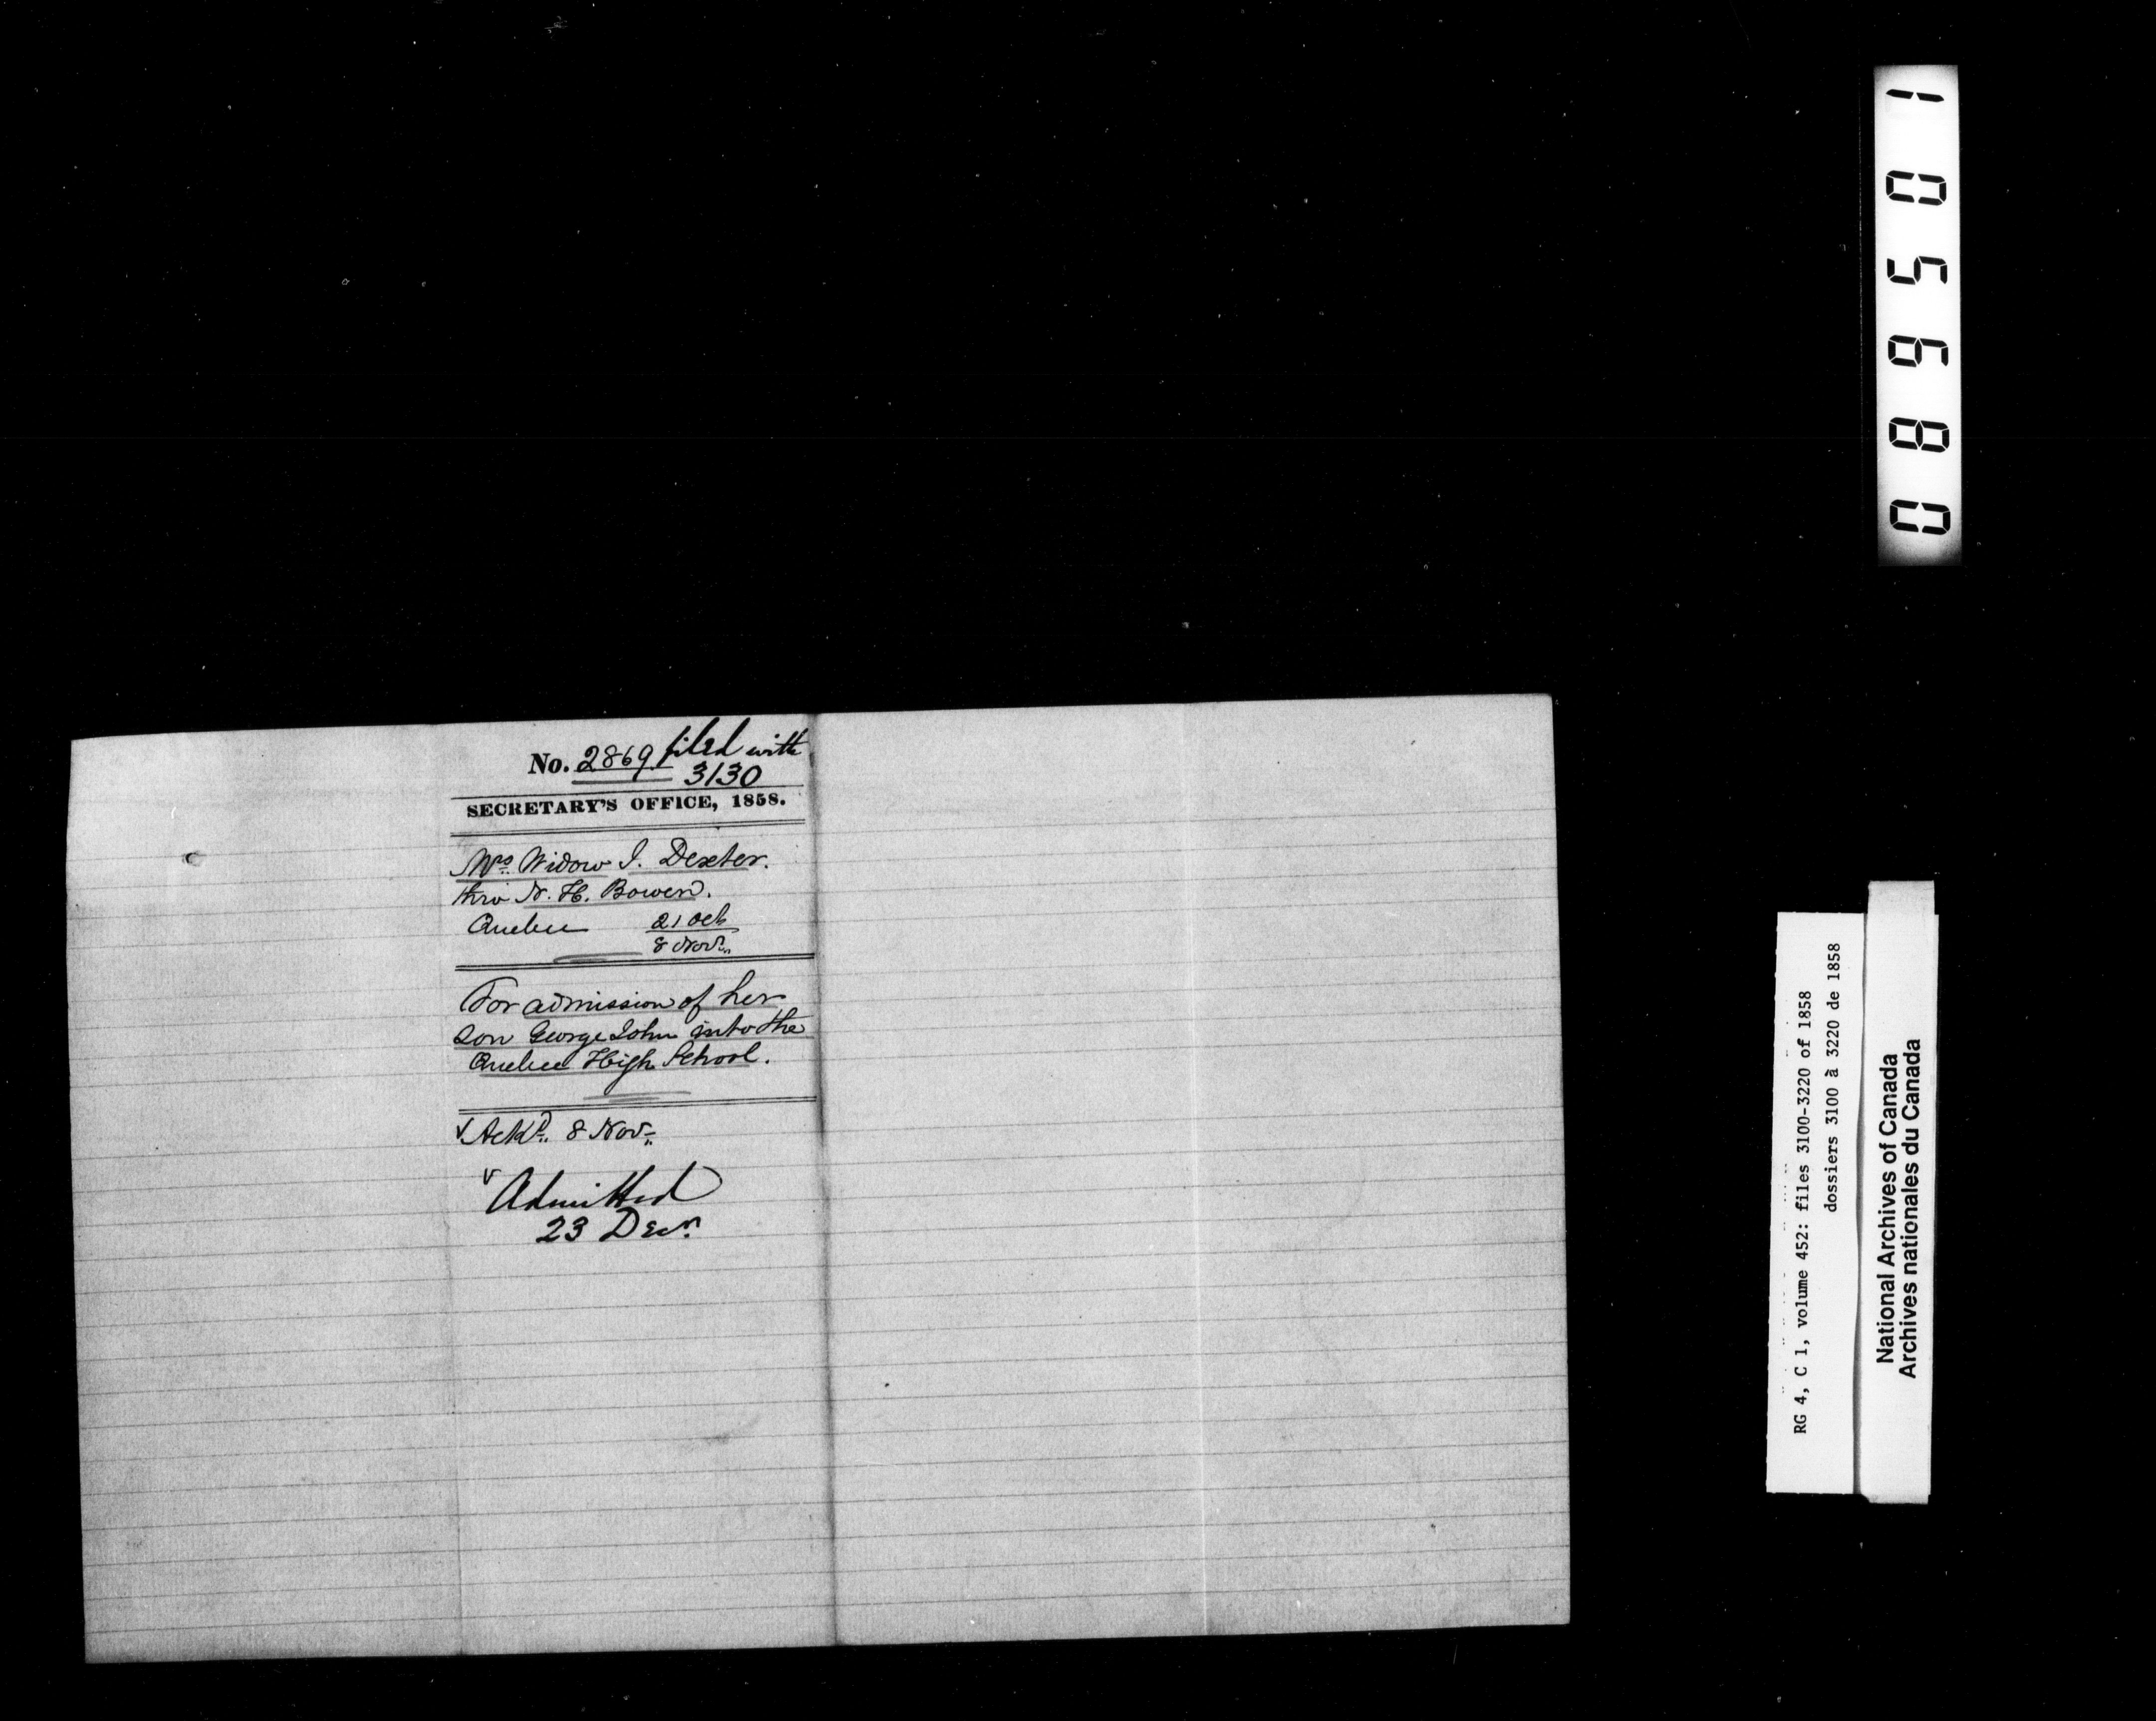 No. 2869 filed with
3130
SECRETARY'S OFFICE, 1858.
Mrs. Widow I. Dexter.
thro N. H. Bowen.
Quebec 21 Oct
8 Novr.
For admission of her
son George John into the
Quebec High School.
Ackd. 8 Novr.
Admitted
23 Decr.
089501
RG 4, C 1, volume 452: files 3100-3220 of 1858
dossiers 3100 à 3220 de 1858
National Archives of Canada
Archives nationales du Canada